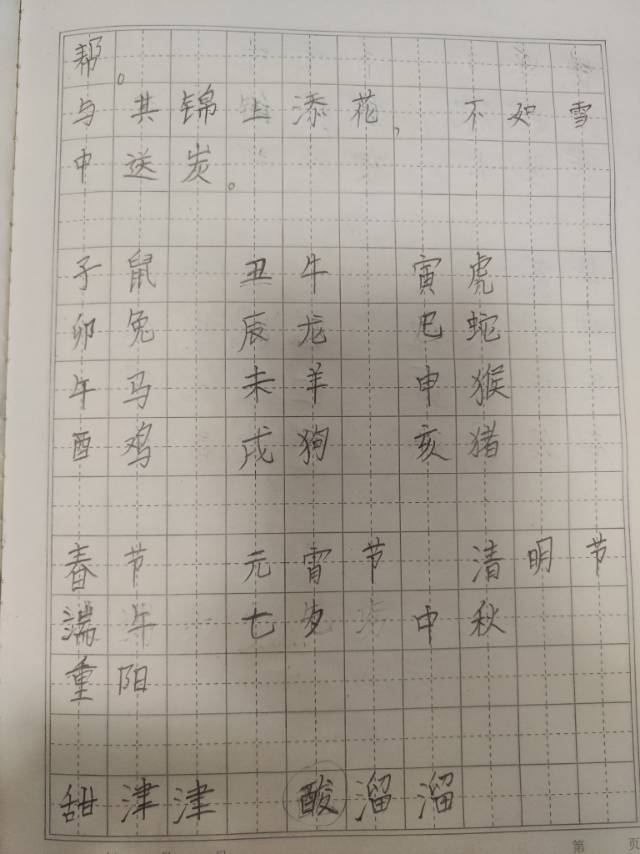 帮。
与其锦上添花，不如雪
中送炭。
子鼠 丑牛 寅虎
卯兔 辰龙 巳蛇
午马 未羊 申猴
酉鸡 戌狗 亥猪
春节 元宵节 清明节
端午 七夕 中秋
重阳
甜津津 酸溜溜
第 页